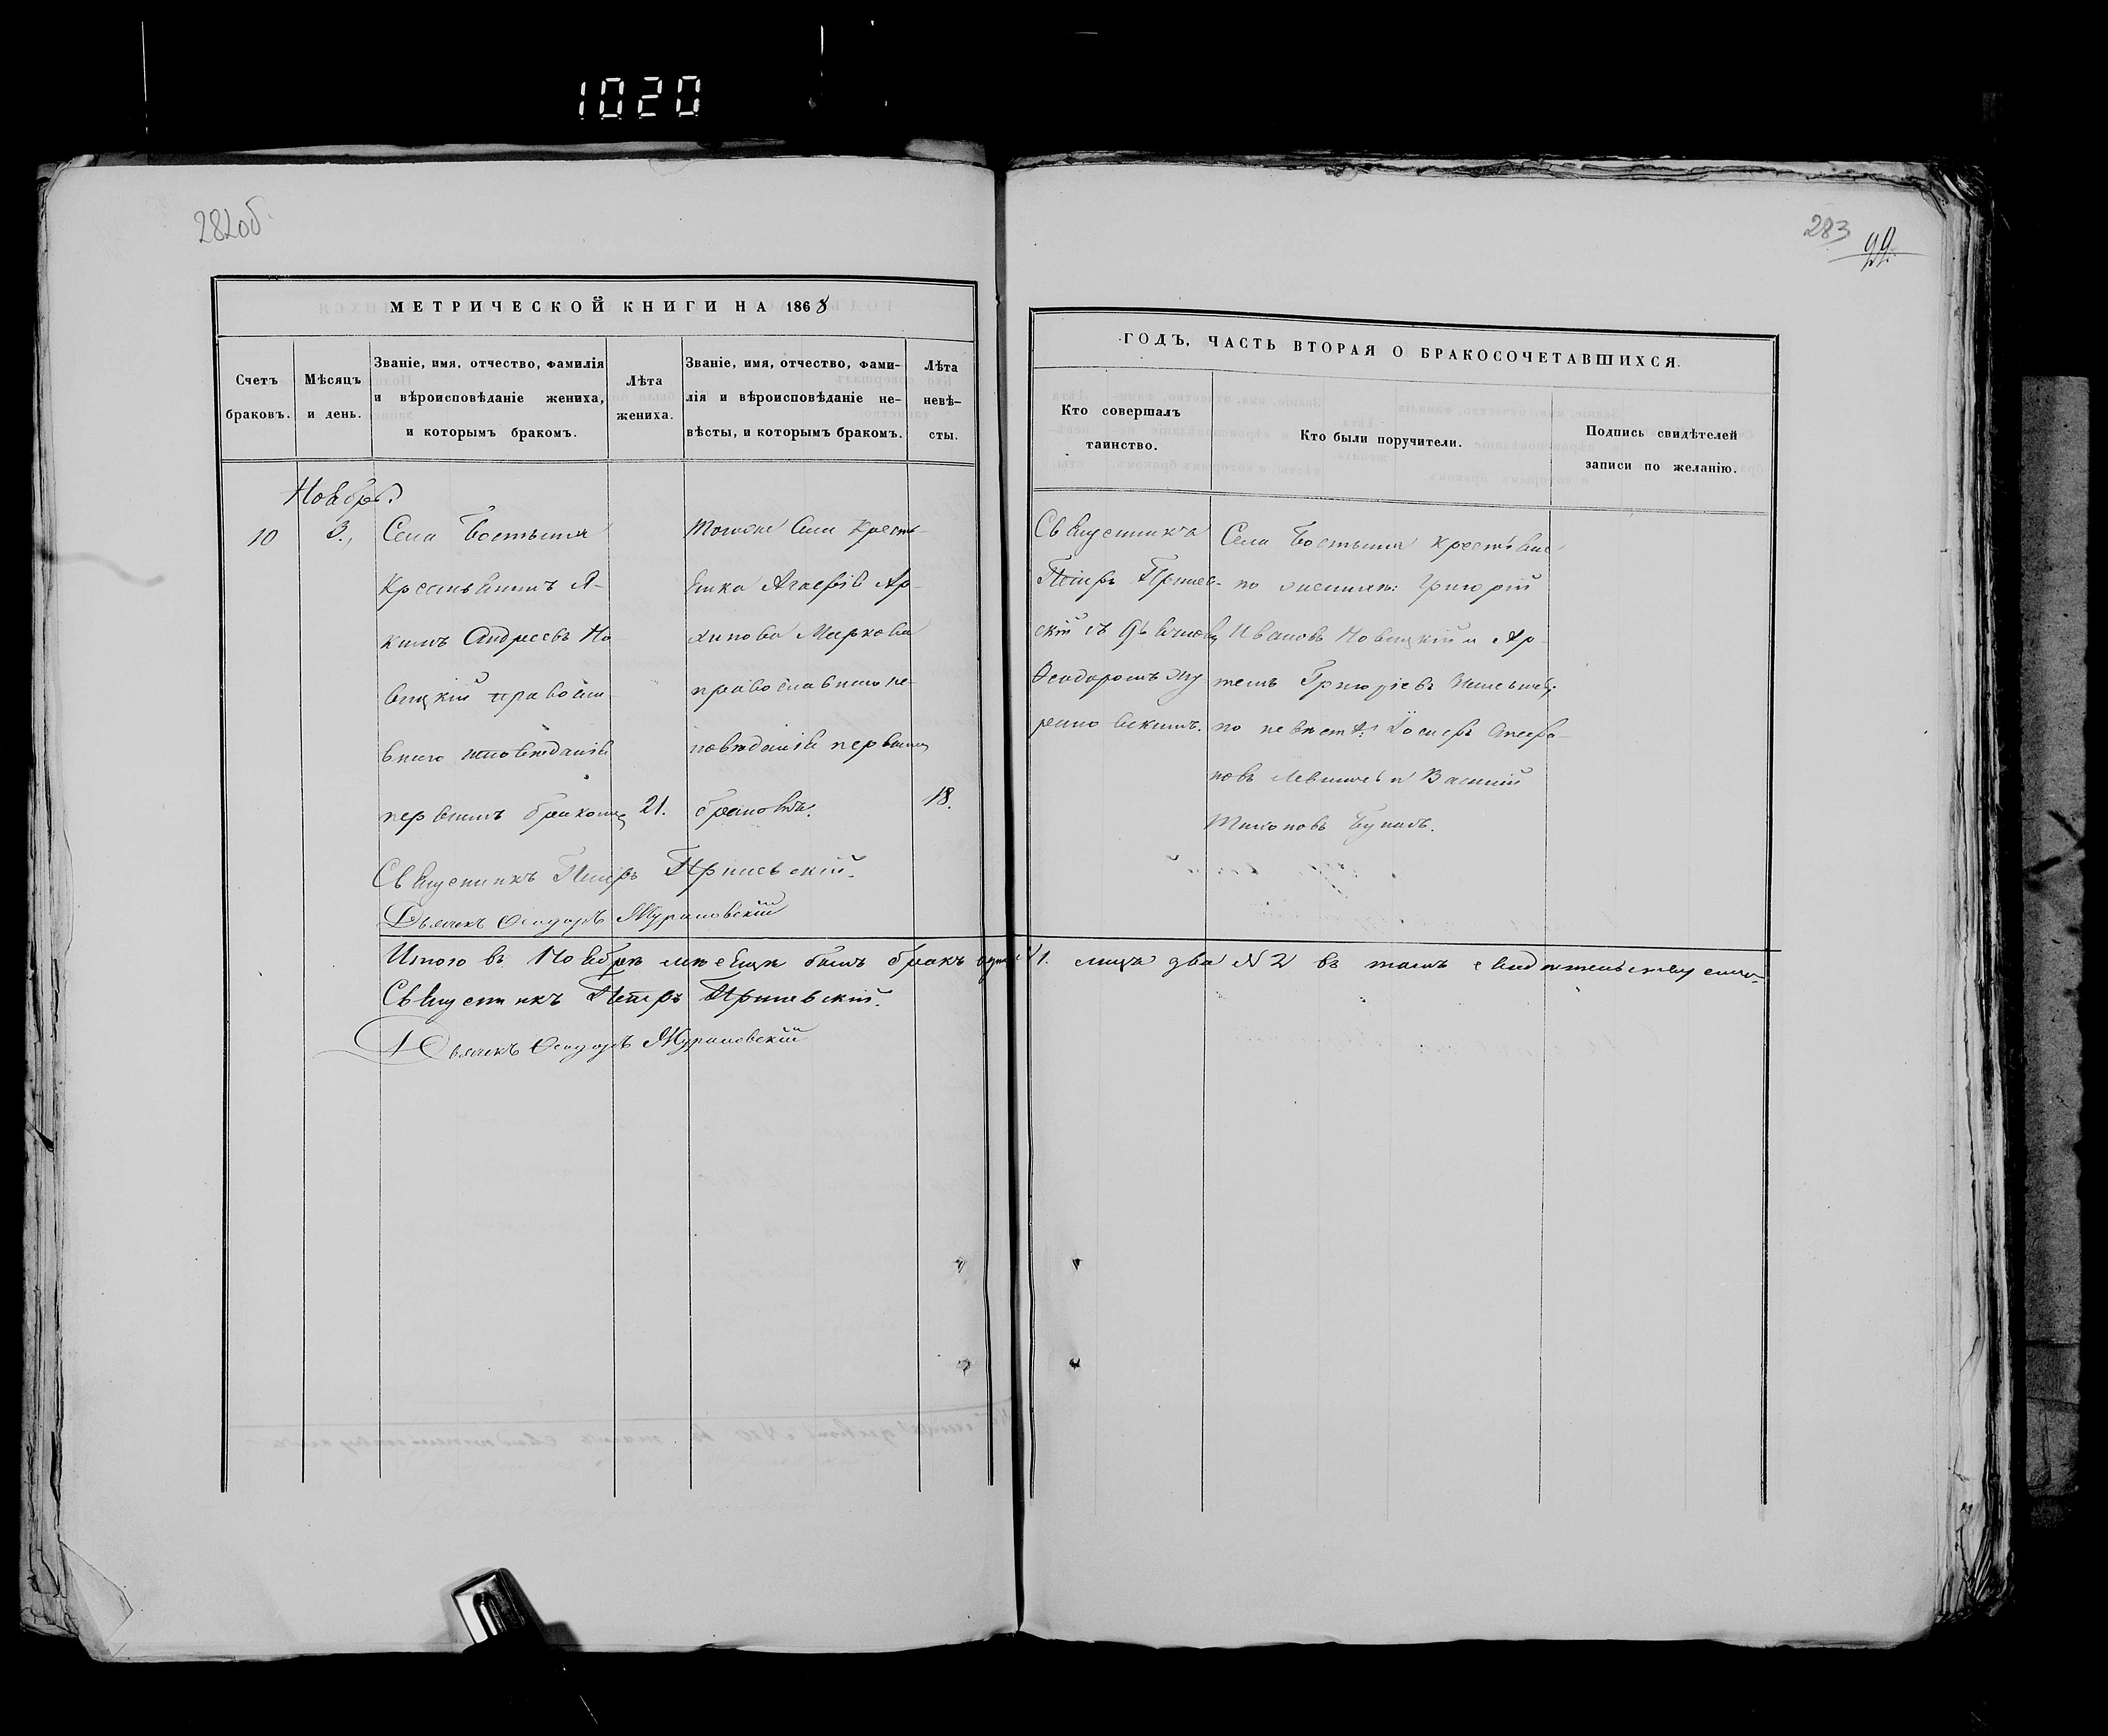 1020
282об
283
99
МЕТРИЧЕСКОЙ КНИГИ НА 1868
ГОДЪ, ЧАСТЬ ВТОРАЯ О БРАКОСОЧЕТАВШИХСЯ.
Счетъ
браковъ.
Мѣсяцъ
и день.
Званіе, имя, отчество, фамилія
и вѣроисповѣданіе жениха,
и которымъ бракомъ.
Лѣта
жениха.
Званіе, имя, отчество, фами-
лія и вѣроисповѣданіе не-
вѣсты, и которымъ бракомъ.
Лѣта
невѣ-
сты.
Кто совершалъ
таинство.
Кто были поручители.
Подпись свидѣтелей
записи по желанію.
Ноябрь.
10
3.,
Села
Крестьянинъ Я-
кимъ Андреевъ Но
вицкій православ-
внаго исповѣданія
первымъ бракомъ
21.
Тогоже Села Кресть-
янка Агафія Ар-
хипова Маркова
православнаго ис-
повѣданія первымъ
бракомъ.
18.
Священникъ
Петръ
скій съ дьячкомъ
Феодоромъ Жу
рановскимъ.
Села крестьяне
по женихѣ: Григорій
Ивановъ Новицкій и Ар-
темъ Григорьевъ
по невѣстѣ:
новъ и Василій
Священникъ Петръ
Дьячекъ Феодоръ Журановскій
Итого въ Ноябрѣ мѣсяцѣ былъ бракъ одинъ N 1. лицъ два N 2 въ томъ свидѣтельствуемъ.
Священникъ Петръ
Дьячекъ Феодоръ Журановскій